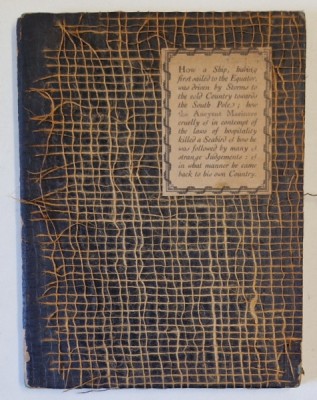 How a Ship, having
first sailed to the Equator,
was driven by Storms to
the cold Country towards
the South Pole; how
the Ancyent Marinere
cruelly & in contempt of
the laws of hospitality
killed a Seabird & how he
was followed by many &
strange Judgements: &
in what manner he came
back to his own Country.